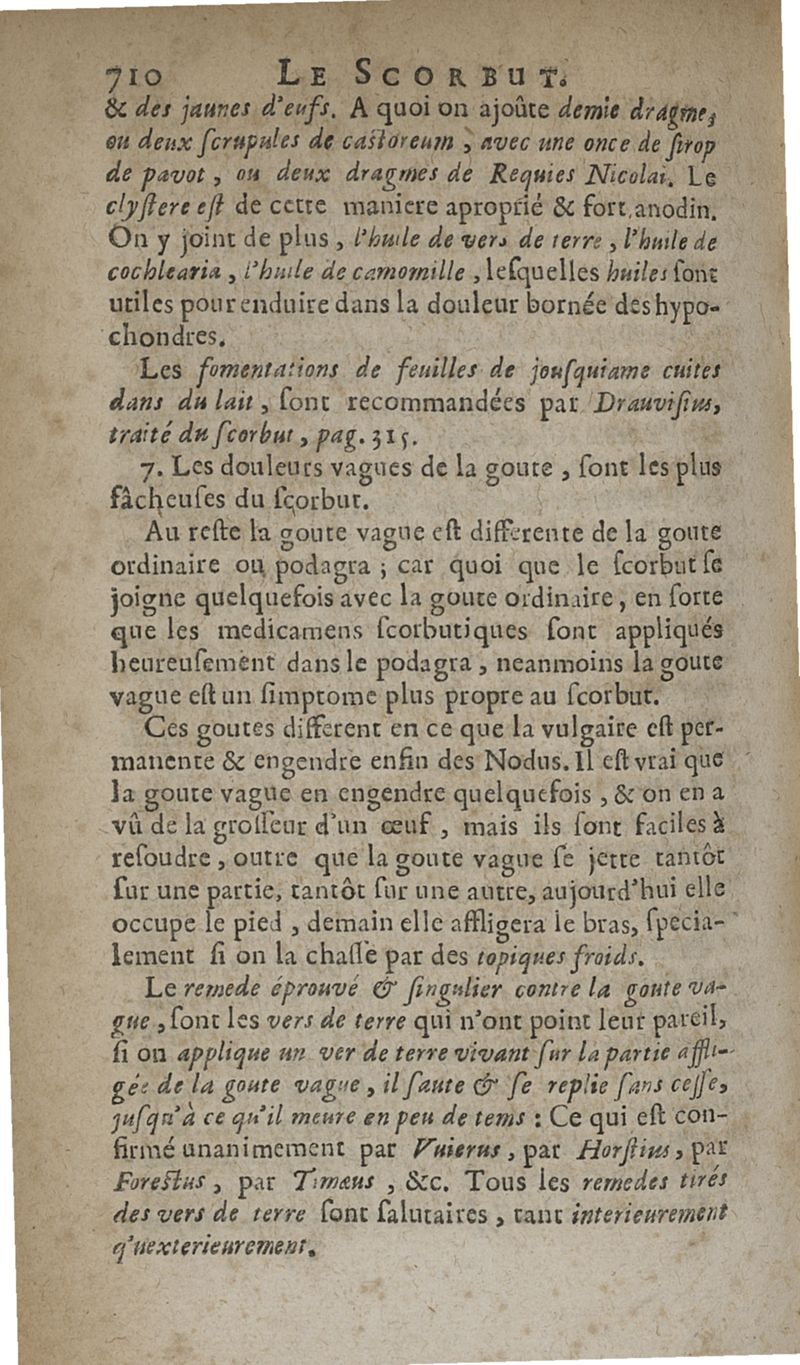 710 LE SCORBUT.
& des jaunes d'eufs. A quoi on ajoûte demie dragme,
ou deux ſcrupules de caſtoreum, avec une once de ſirop
de pavot, ou deux dragmes de Requies Nicolai. Le
clyſtere eſt de cette maniere aproprié & fort anodin.
On y joint de plus, l'huile de vers de terre, l'huile de
cochlearia, l'huile de camomille, leſquelles huiles ſont
utiles pour enduire dans la douleur bornée des hypo-
chondres.
Les fomentations de feuilles de jouſquiame cuites
dans du lait, ſont recommandées par Drauviſius,
traité du ſcorbut, pag. 315.
7. Les douleurs vagues de la goute, ſont les plus
fâcheuſes du ſcorbut.
Au reſte la goute vague eſt differente de la goute
ordinaire ou podagra; car quoi que le ſcorbut ſe
joigne quelquefois avec la goute ordinaire, en ſorte
que les medicamens ſcorbutiques ſont appliqués
heureuſement dans le podagra, neanmoins la goute
vague eſt un ſimptome plus propre au ſcorbut.
Ces goutes different en ce que la vulgaire eſt per-
manente & engendre enfin des Nodus. Il eſt vrai que
la goute vague en engendre quelquefois, & on en a
vû de la groſſeur d'un œuf, mais ils ſont faciles à
reſoudre, outre que la goute vague ſe jette tantôt
ſur une partie, tantôt ſur une autre, aujourd'hui elle
occupe le pied, demain elle affligera le bras, ſpecia-
lement ſi on la chaſſe par des topiques froids.
Le remede éprouvé & ſingulier contre la goute va-
gue, ſont les vers de terre qui n'ont point leur pareil,
ſi on applique un ver de terre vivant ſur la partie affli-
gée de la goute vague, il ſaute & ſe replie ſans ceſſe,
juſqu'à ce qu'il meure en peu de tems: Ce qui eſt con-
firmé unanimement par Vuierus, par Horſtius, par
Foreſtus, par Timæus, &c. Tous les remedes tirés
des vers de terre ſont ſalutaires, tant interieurement
q'uexterieurement.